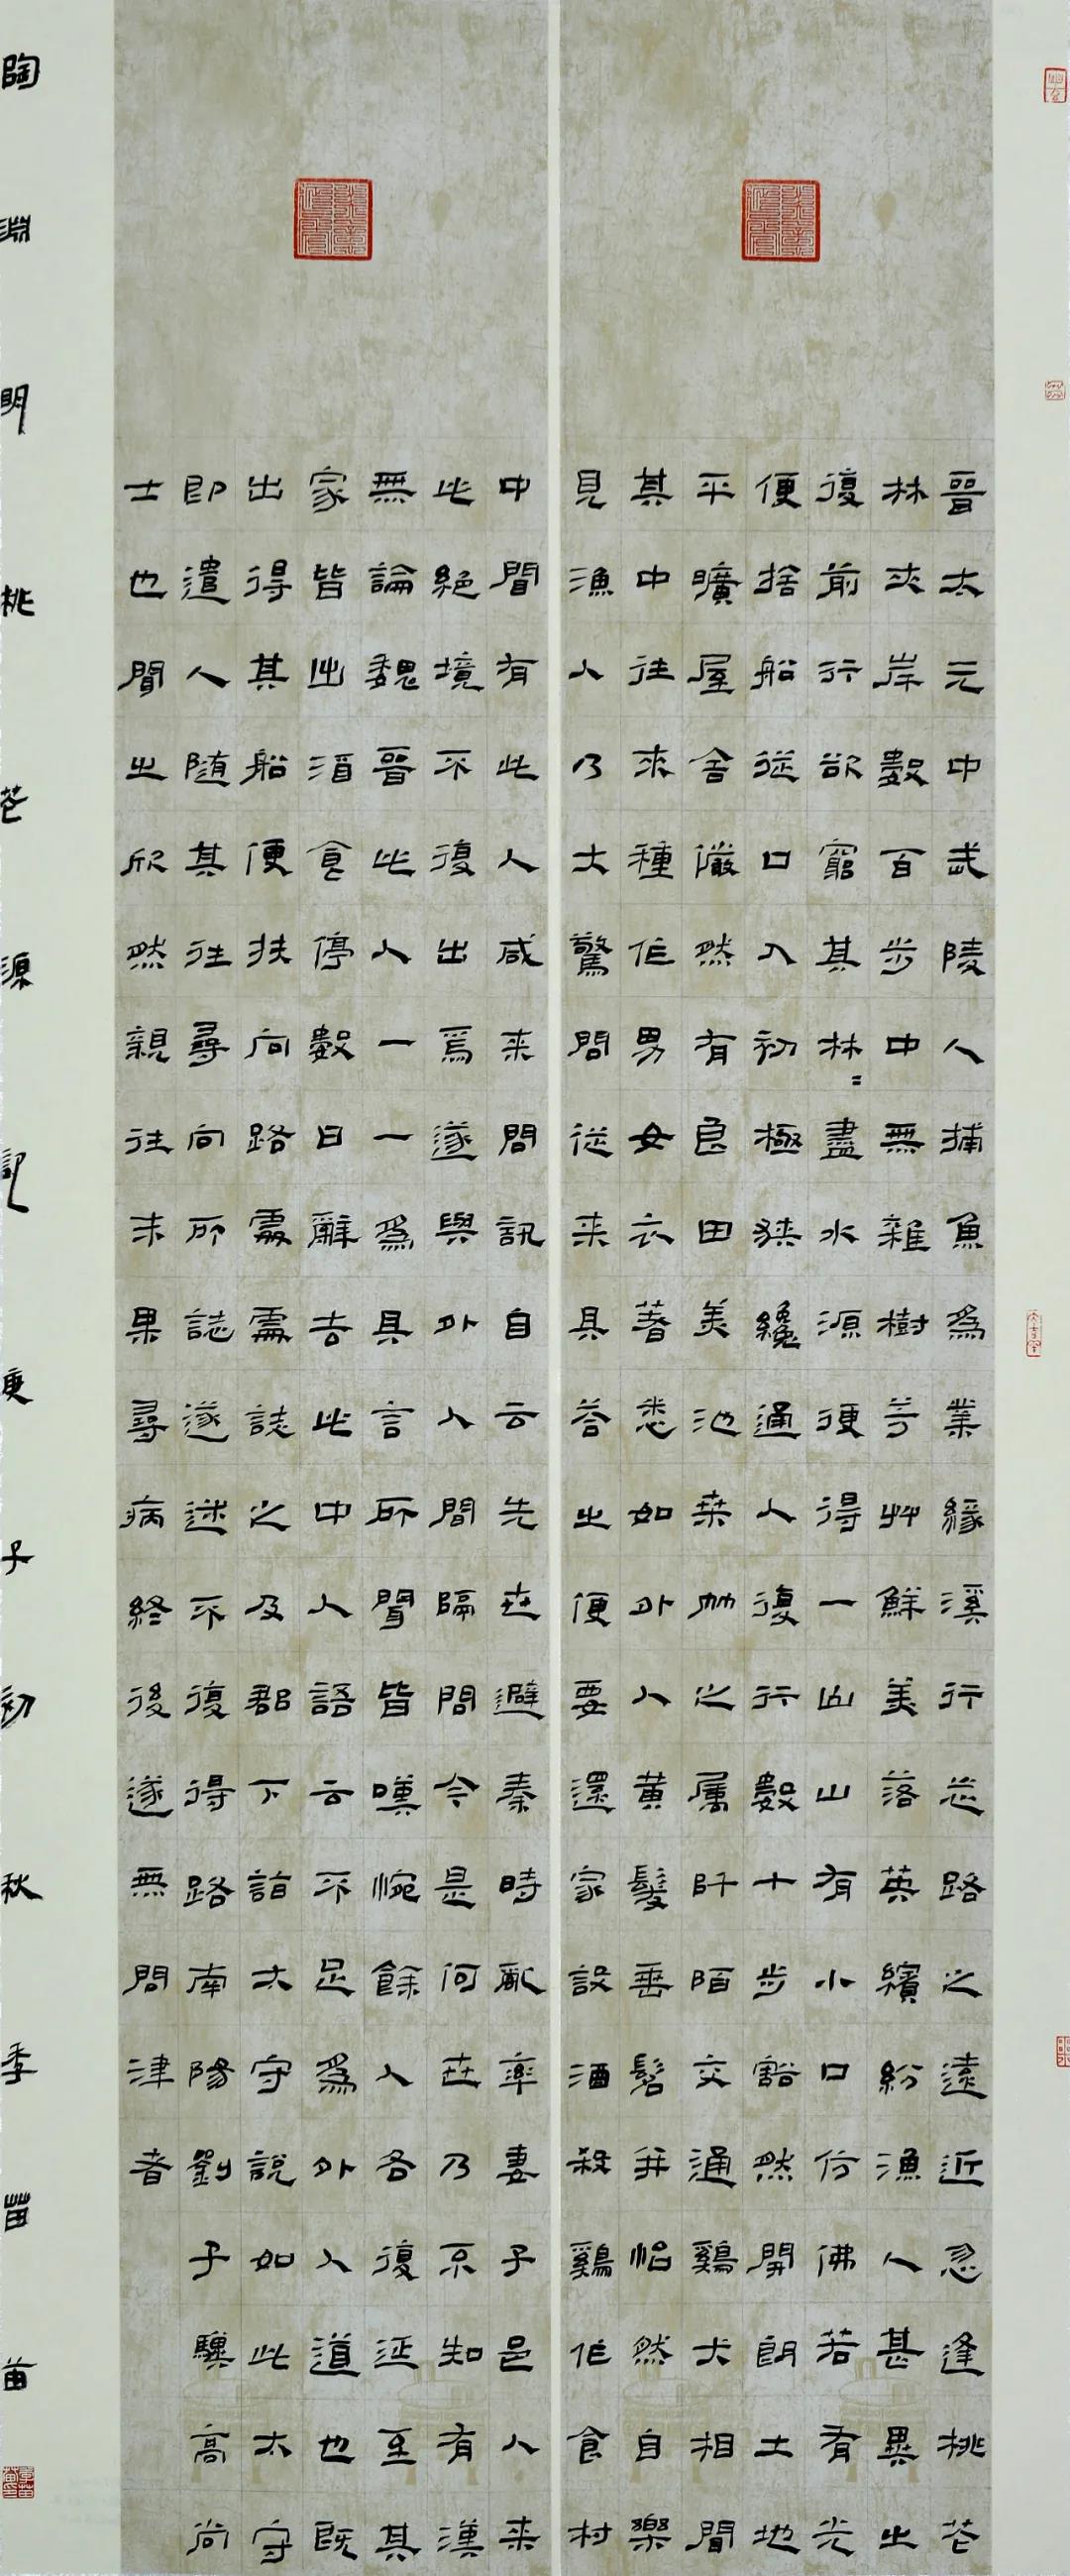 晉太元中武陵人捕魚爲業緣溪行忘路之遠近忽逢桃花
林夾岸數百步中無雜樹芳艸鮮美落英繽紛漁人甚異之
復前行欲窮其林=盡水源便得一山山有小口仿佛若有光
便捨船從口入初極狹纔通人復行數十步豁然開朗土地
平曠屋舍儼然有良田美池桑竹之屬阡陌交通鷄犬相聞
其中往來種作男女衣著悉如外人黃髮垂髫并怡然自樂
見漁人乃大驚問從来具荅之便要還家設酒殺鷄作食村
中聞有此人咸来問訊自云先世避秦時亂率妻子邑人来
此絕境不復出焉遂與外人間隔問今是何世乃不知有漢
無論魏晉此人一一爲具言所聞皆嘆惋餘人各復延至其
家皆出酒食停數日辭去此中人語云不足爲外人道也既
出得其船便扶向路處處誌之及郡下詣太守說如此太守
即遣人随其往尋向所誌遂迷不復得路南陽劉子驥高尚
士也聞之欣然親往未果尋病終後遂無問津者
陶淵明桃花源記庚子初秋季苗